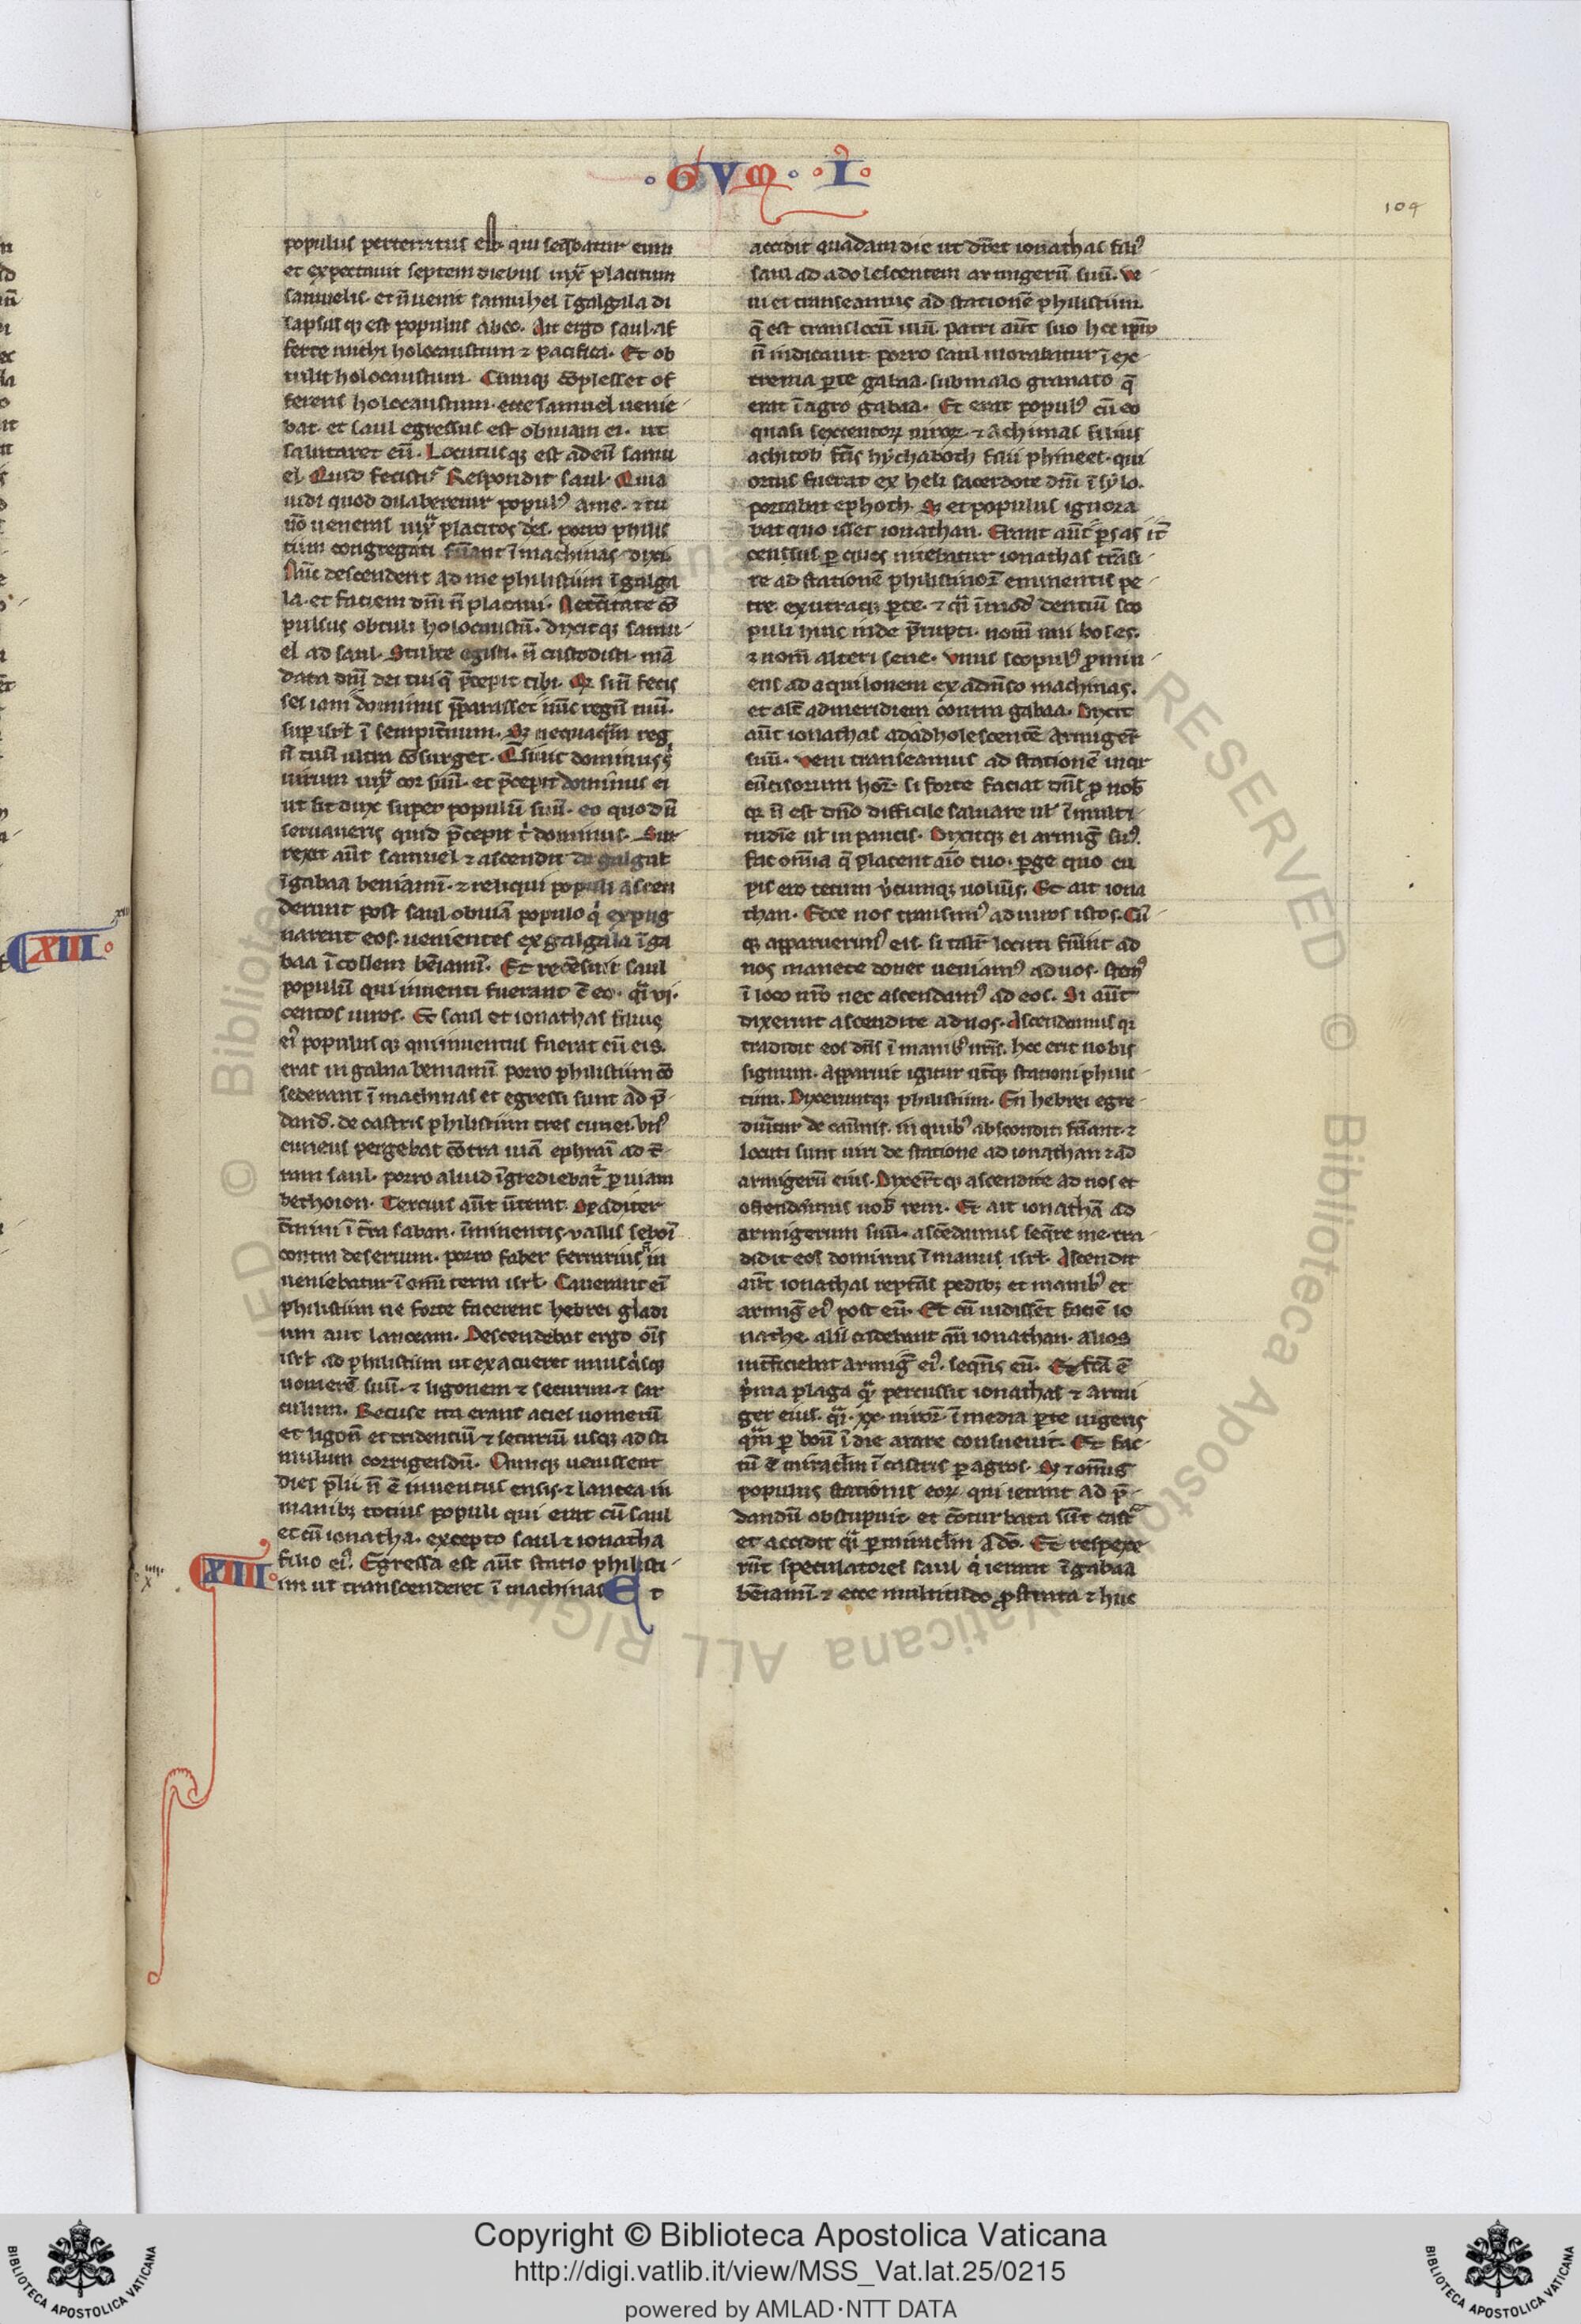 ·GVM· ·I·
104
populus perterritus est qui seqbatur eum
et expectauit septem diebus iuxͣ placitum
samuelis· et n̄ uenit samuhel ī galgala di
lapsus qꝫ est populus abeo· Ait ergo saul· af
ferte michi holocaustum ⁊ pacifica· Et ob
tulit holocaustum· Cumqꝫ ꝯplesset of
ferens holocaustum· ecce samuel uenie
bat· et saul egressus est obuiam ei· ut
salutaret eū· Locutusqꝫ est ad eū samu
el Quid fecisti Respondit saul· Quia
uidi quod dilaberetur populꝰ ame· ⁊ tu
nō ueneras iuxͣ placitos des· porro philis
tiim congregati fūant ī machinas dixi
Nūc descendent ad me philistiim ī galga
la· et faciem dnī n̄ placaui· Necc̄itate ꝯ
pulsus obtuli holocaustū· dixitqꝫ samu
el ad saul· Stulte egisti· n̄ custodisti mā
data dnī dei tui q̄ p̄cepit tibi· Qꝫ si n̄ fecis
ses iam dominus p̄parasset nūc regnū tuū·
suꝑ isrł ī sempit̄num· Sꝫ nequaq̄m reg
nū tuū ultra ꝯsurget· Q̄siuit dominus sͥ
uirum iuxͣ cor suū· et p̄cepit dominus ei
ut sit dux super populū suū· eo quod n̄
seruaueris quid p̄cepit tͥ dominus· Sur
rexit aūt samuel ⁊ ascendit de galgal
ī gabaa beniamī· ⁊ reliqui populi ascen
derunt post saul obuiā populo qͥ expug
narent eos· uenientes ex galgala ī ga
baa ī collem bēiamī· Et recēsuit saul
populū qui inuenti fuerant c̄ eo· qͣi vi·
centos uiros· Et saul et ionathas filius
eiꝰ populus qꝫ qui inuentus fuerat cū eis·
erat in gabaa beniamī porro philistiim ꝯ
sederant ī machinas et egressi sunt ad p̄
dand̄· de castris philistiim tres cunei· vnꝰ
cuneus pergebat cōtra uiā ephraī ad t̄
ram saul· porro aliud īgrediebat̄ ꝑ uiam
bethoron· Tercius aūt ūterat se ad iter
t̄mini ī t̄ra saban· īminentis vallis seboī
contra desertum· porro faber ferrarius n̄ in
ueniebatur ī omī terra isrł· Cauerant eī
philistiim ne forte facerent hebrei gladi
um aut lanceam· Descendebat ergo oīs
isrł ad philistiim ut exacueret unusqͥsqꝫ
uomerē suū· ⁊ ligonem ⁊ securim· ⁊ sar
culum· Retuse ita erant acies uomerū
et ligonū et tridentiū ⁊ securiū usqꝫ ad sti
mulum corrigendū· Cumqꝫ uenissent
dies p̄lii n̄ ē inuentus ensis· ⁊ lancea in
manibꝫ totius populi qui erat cū saul
et cū ionatha· excepto saul ⁊ ionatha
filio eiꝰ· Egressa est aūt statio philisti
im ut transcenderet ī machinas Et
XIIII
accidit quadam die ut dr̄et ionathas filiꝰ
saul ad adolescentem armigerū suū· ve
ni et transeamus ad stationē philistiim·
q̄ est trans locū illū· patri aūt suo hoc ipsū
n̄ indicauit· porro saul morabatur ī ex
trema ꝑte gabaa· sub malo granato q̄
erat ī agro gabaa· Et erat populꝰ cū eo
quasi sexcentoꝝ uiroꝝ· ⁊ achimas filius
achitob fr̄is hychaboth filii phinees· qui
ortus fuerat ex heli sacerdote dnī ī sylo·
portabat ephoth· Sꝫ et populus ignora
bat quo isset ionathan· Erant aūt
censsus ꝑ ques nitebatur ionathas trāsi
re ad stationē philistinoꝝ eminentis pe
tre ex utraqꝫ ꝑte· ⁊ qͣi ī mod̄ dentiū sco
puli hinc inde p̄rupti· nom̄ uni boses·
⁊ nom̄ alteri sene· vnus scopulꝰ ꝓmin
ens ad aquilonem ex aduso machinas·
et alꝰ ad meridiem contra gabaa· Dixit
aūt ionathas ad adholescentē armigerū
suū· veni transeamus ad stationē incir
cūcisorum horꝝ· si forte faciat dn̄s ꝓ nob̄
qꝫ n̄ est dnō difficile saluare ul̄ ī multi
tudīe ul̄ in paucis· Dixitqꝫ ei armiḡ suꝰ·
fac omīa q̄ placent aīo tuo· ꝑge quo cu
pis ero tecum ubicumqꝫ uolūis· Et ait iona
than· Ecce nos transimꝰ ad uiros istos· Cū
qꝫ apparuerimꝰ eis· si talit̄ locuti fūint ad
nos manete donec ueniamꝰ ad uos· stemꝰ
ī loco nr̄o nec ascendamꝰ ad eos· Si aūt
dixerint ascendite ad nos· Ascendamus qꝫ
tradidit eos dn̄s ī manibꝰ nr̄is· hoc erit nobis
signum· Apparuit igitur utqꝫ stationi philis
tiim· Dixeruntqꝫ philistiim· En hebrei egre
diūtur de cauīnis· in quibꝰ absconditi fūant· ⁊
locuti sunt uiri de statione ad ionathan ⁊ ad
armigerū eius· Dixer̄tqꝫ ascendite ad nos et
ostendamus uob̄ rem· Et ait ionathā ad
armigerum suū· ascēdamus seq̄re me· tra
didit eos dominus ī manus isrł· Ascendit
aūt ionathas reptās pedibꝫ et manibꝰ et
armiḡ eiꝰ post eū· Et cū uidissēt faciē io
nathe· alii cadebant an̄ ionathan· alios
int̄ficiebat armiḡ eiꝰ· seqn̄s eū· Et fc̄a ē
p̄ma plaga qͣ percussit ionathas ⁊ armi
ger eius· qͣi· xx· uiroꝝ· ī media ꝑte iugeris
qͣm ꝑ boū ī die arare consueuit· Et fac
tū ē mirac̄lm ī castris ꝑ agros· Sꝫ ⁊ omīs
populus stationis eoꝝ qui ierant ad p̄
dandū obstupuit· et cōturbata sūt castͣ
et accidit qͣi ꝑ mirac̄lm a dō· Et respexe
rūt speculatores saul qͥ ierant ī gabaa
bēiamī· ⁊ ecce multitudo ꝓstrata ⁊ huc
XIII
Copyright © Biblioteca Apostolica Vaticana
http://digi.vatlib.it/view/MSS_Vat.lat.25/0215
powered by AMLAD·NTT DATA
BIBLIOTECA APOSTOLICA VATICANA
BIBLIOTECA APOSTOLICA VATICANA